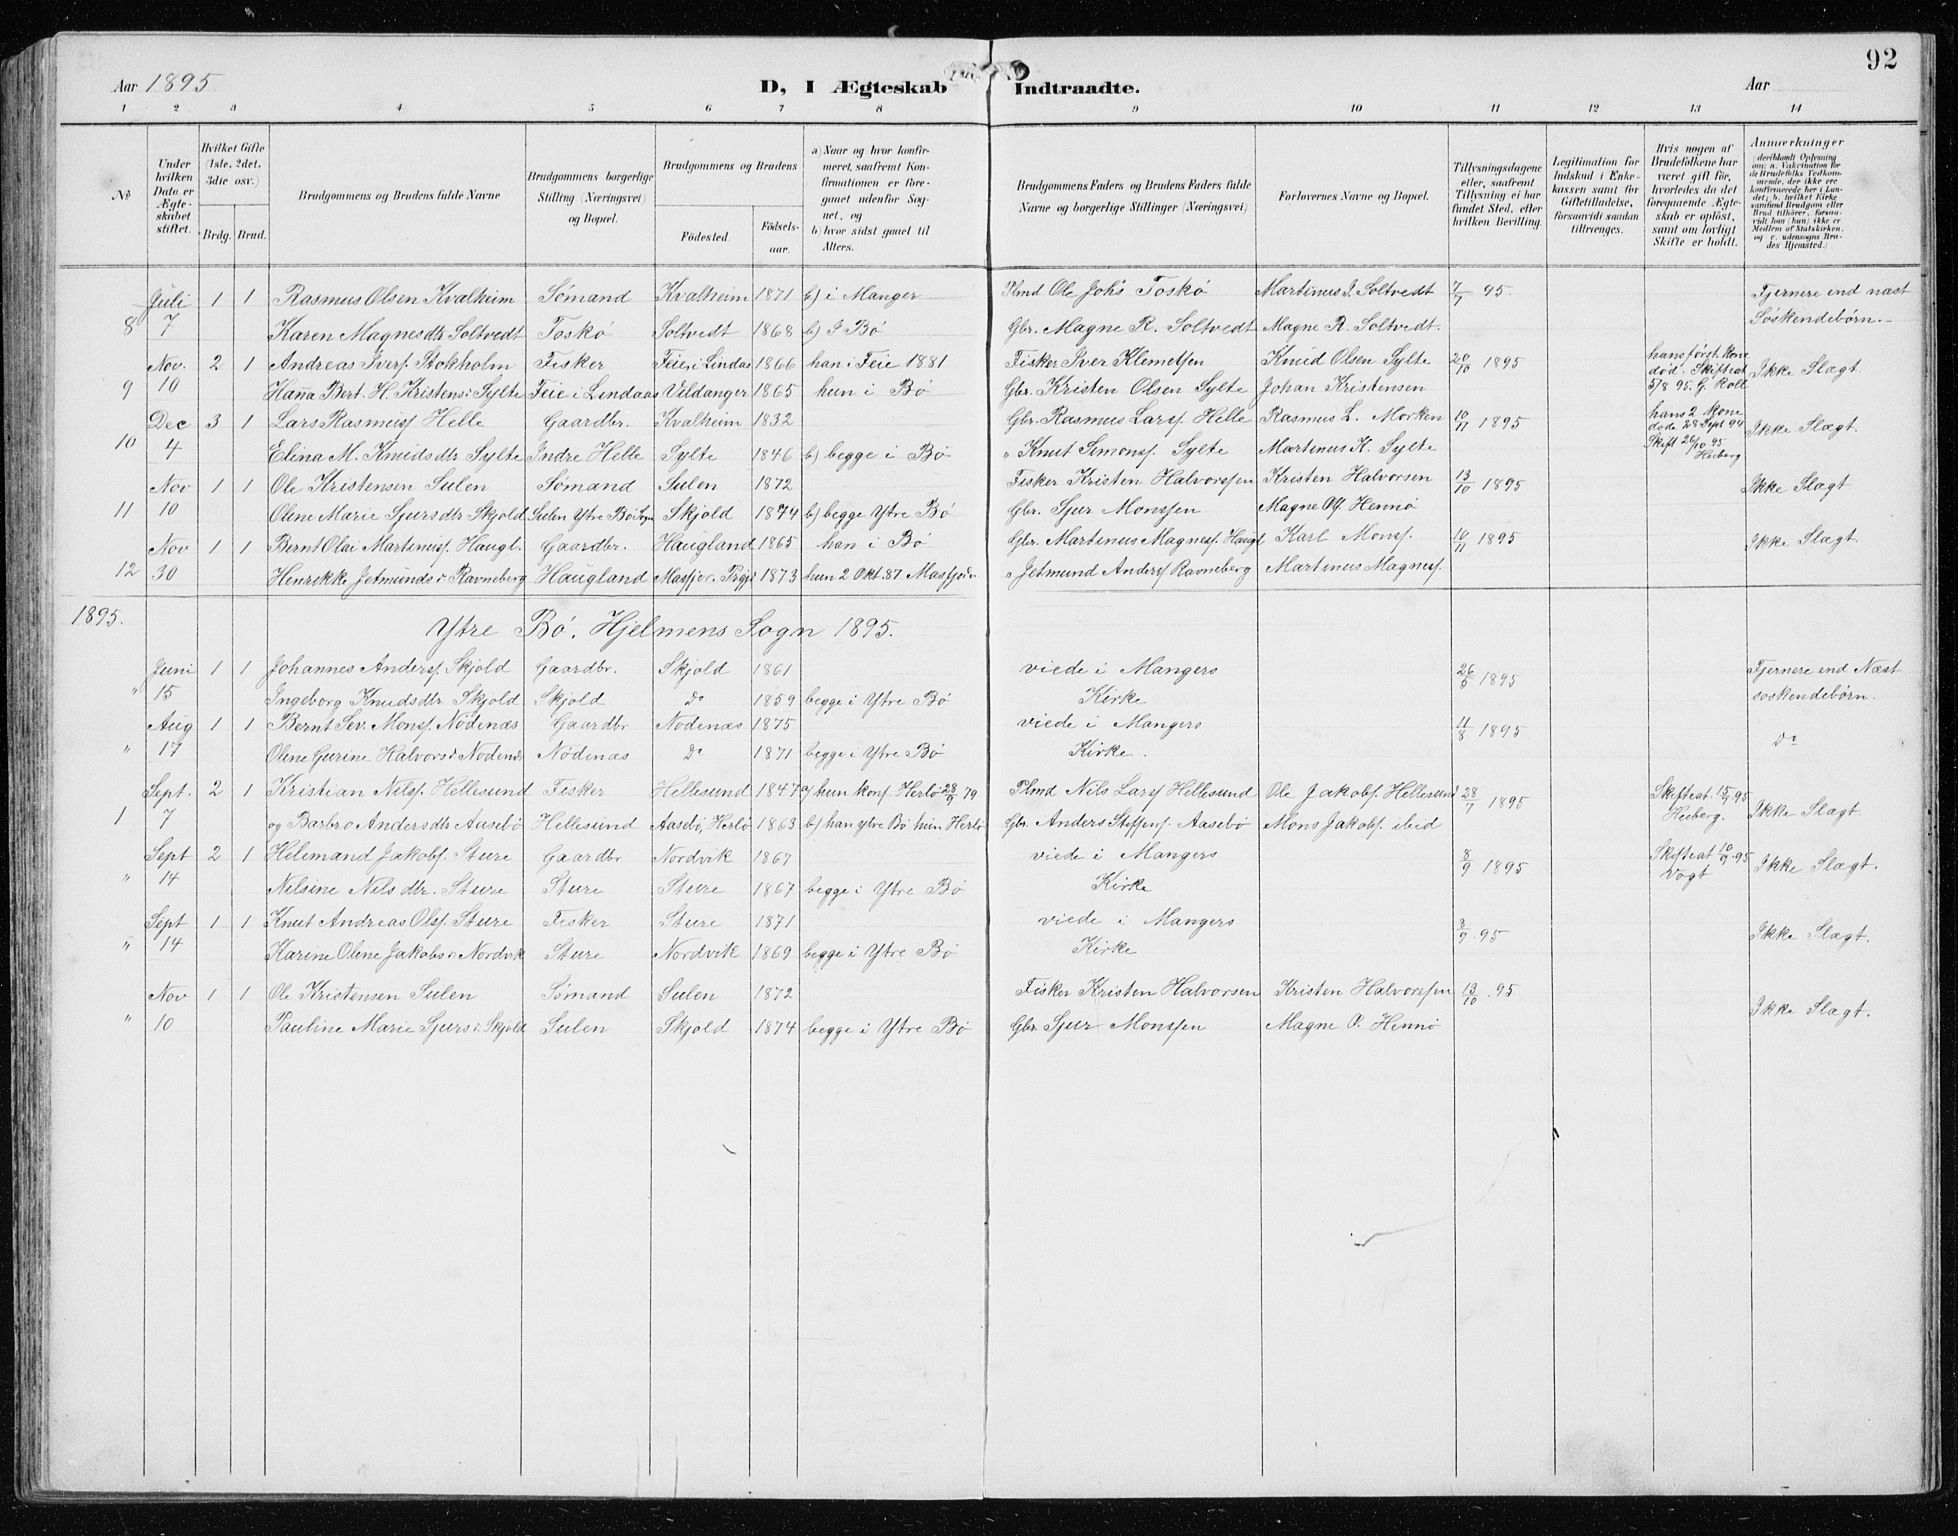 92
Aar 1895 D, I Ægteskab Indtraadte. Aar
1 2 3 4 5 6 7 8 9 10 11 12 13 14
No
Under hvilken Dato er Ægteskabet stiftet.
Hvilket Gifte (1ste, 2det, 3die osv.)
Brdg. Brud.
Brudgommens og Brudens fulde Navne
Brudgommens borgerlige Stilling (Næringsvei) og Bopæl.
Brudgommens og Brudens
Fødested. Fødselsaar.
a) Naar og hvor konfirmeret, saafremt Konfirmationen er foregaaet udenfor Sognet, og
b) hvor sidst gaaet til Alters.
Brudgommens Faders og Brudens Faders fulde Navne og borgerlige Stillinger (Næringsvei)
Forlovernes Navne og Bopæl.
Tillysningsdagene eller, saafremt Tillysning ei har fundet Sted, efter hvilken Bevilling.
Legitimation for Indskud i Enkekassen samt for Giftetilladelse, forsaavidt saadan tiltrænges.
Hvis nogen af Brudefolkene har været gift før, hvorledes da det foregaaende Ægteskab er opløst, samt om lovligt Skifte er holdt.
Anmærkninger
(deriblandt Oplysning om: a. Vakcination for de Brudefolks Vedkommende, der ikke ere konfirmerede her i Landet; b. hvilket Kirkesamfund Brudgom eller Brud tilhører, forsaavidt han (hun) ikke er Medlem af Statskirken, og c. udensogns Brudes Hjemsted.)
Juli 1 1 Rasmus Olsen Kvalheim Sømand Kvalheim 1871 b) i Manger Plmd Ole Johs Toskø Martinus J. Soltvedt 7/7 95. Fjernere end næst
8 7 Karen Magnesdtr Soltvedt Toskø Soltvedt 1868 b) I Bø Gbr. Magne R. Soltvedt Magne R. Soltvedt. Søskendebørn.
Nov. 2 1 Andreas Iversf. Stokholm Fisker Feie i Lindaas 1866 han i Feie 1881 Fisker Iver Klemetsen Knud Olsen Sylte 20/10 1895 hans først. Kone død. Skifteat Ikke Slægt.
9 10 Hanna Bert. H. Kristensdr Sylte Feie i Lindaas Vildanger 1865 hun i Bø Gbr. Kristen Olsen Sylte Johan Kristensen 5/8 95. G. Roll
Dec 3 1 Lars Rasmusf. Helle Gaardbr. Kvalheim 1832 Gbr. Rasmus Larsf. Helle Rasmus L. Morken 10/11 1895 hans 2 Kone døde 28 Sept 94 Ikke Slægt.
10 4 Elina M. Knudsdtr Sylte Indre Helle Sylte 1846 b) begge i Bø " Knut Simonsf. Sylte Martinus K. Sylte Skift 26/10 95 Heiberg
Nov 1 1 Ole Kristensen Sulen Sømand Sulen 1872 Fisker Kristen Halvorssen Kristen Halvorsen 13/10 1895 Ikke Slægt
11 10 Oline Marie Sjursdtr Skjold Sulen Ytre Bø Sogn Skjold 1874 b) begge Ytre Bø Gbr. Sjur Monssen Magne Ols. Hennø
Nov 1 1 Bernt Olai Martinusf. Haugl. Gaardbr. Haugland 1865 han i Bø Gbr. Martinus Magnesf. Haugl Karl Monsf. 10/11 1895 Ikke Slægt.
12 30 Henrikke Jetmundsdr Ravneberg Haugland Masfjor. Prgjd 1873 hun 2 Okt. 87 Masfjor. " Jetmund Andersf. Ravneberg Martinus Magnesf.
1895. Ytre Bø. Hjelmens Sogn 1895.
Juni 1 1 Johannes Andersf. Skjold Gaardbr. Skjold 1861 viede i Mangers 26/5 1895 Fjernere end Næst
" 15 Ingeborg Knudsdtr Skjold Skjold do 1859 begge i Ytre Bø Kirke søskendebørn.
Aug 1 1 Bernt Sev. Monsf. Nödenæs Gaardbr Nödenæs 1875 viede i Mangers 11/8 1895
" 17 Oline Gurine Halvorsdr Nödenæs Nödenæs do 1871 begge i Ytre Bø Kirke. do
Sept. 2 1 Kristian Nilsf. Hellesund Fisker Hellesund 1847 a) hun konf. Herlø 28/9 79 Plmd Nils Larsf Hellesund Ole Jakobsf. Hellesund 28/7 1895 Skifteat 15/7 95
1 7 og Barbro Andersdtr Aasebø Hellesund Aasebø, Herlø 1863 b) han ytre Bø hun Herlø Gbr. Anders Steffensf. Aasebø Mons Jakobsf. ibid Heiberg. Ikke Slægt.
Sept 2 1 Helemand Jakobsf. Sture Gaardbr Nordvik 1867 viede i Mangers 8/9 1895 Skifteat 10/9 95
" 14 Nilsine Nilsdtr. Sture Sture Sture 1867 begge i Ytre Bø Kirke Vogt Ikke Slægt.
Sept 1 1 Knut Andreas Olsf. Sture Fisker Sture 1871 viede i Mangers 8/9 95
" 14 Karine Oline Jakobsdr Nordvik Sture Nordvik 1869 begge i Ytre Bø Kirke Ikke Slægt.
Nov 1 1 Ole Kristensen Sulen Sømand Sulen 1872 Fisker Kristen Halvorsen Kristen Halvorssen 13/10 . 95
" 10 Pauline Marie Sjursdr. Skjold Sulen Skjold 1874 begge i Ytre Bø Gbr Sjur Monssen Magne O. Hennø Ikke Slægt.